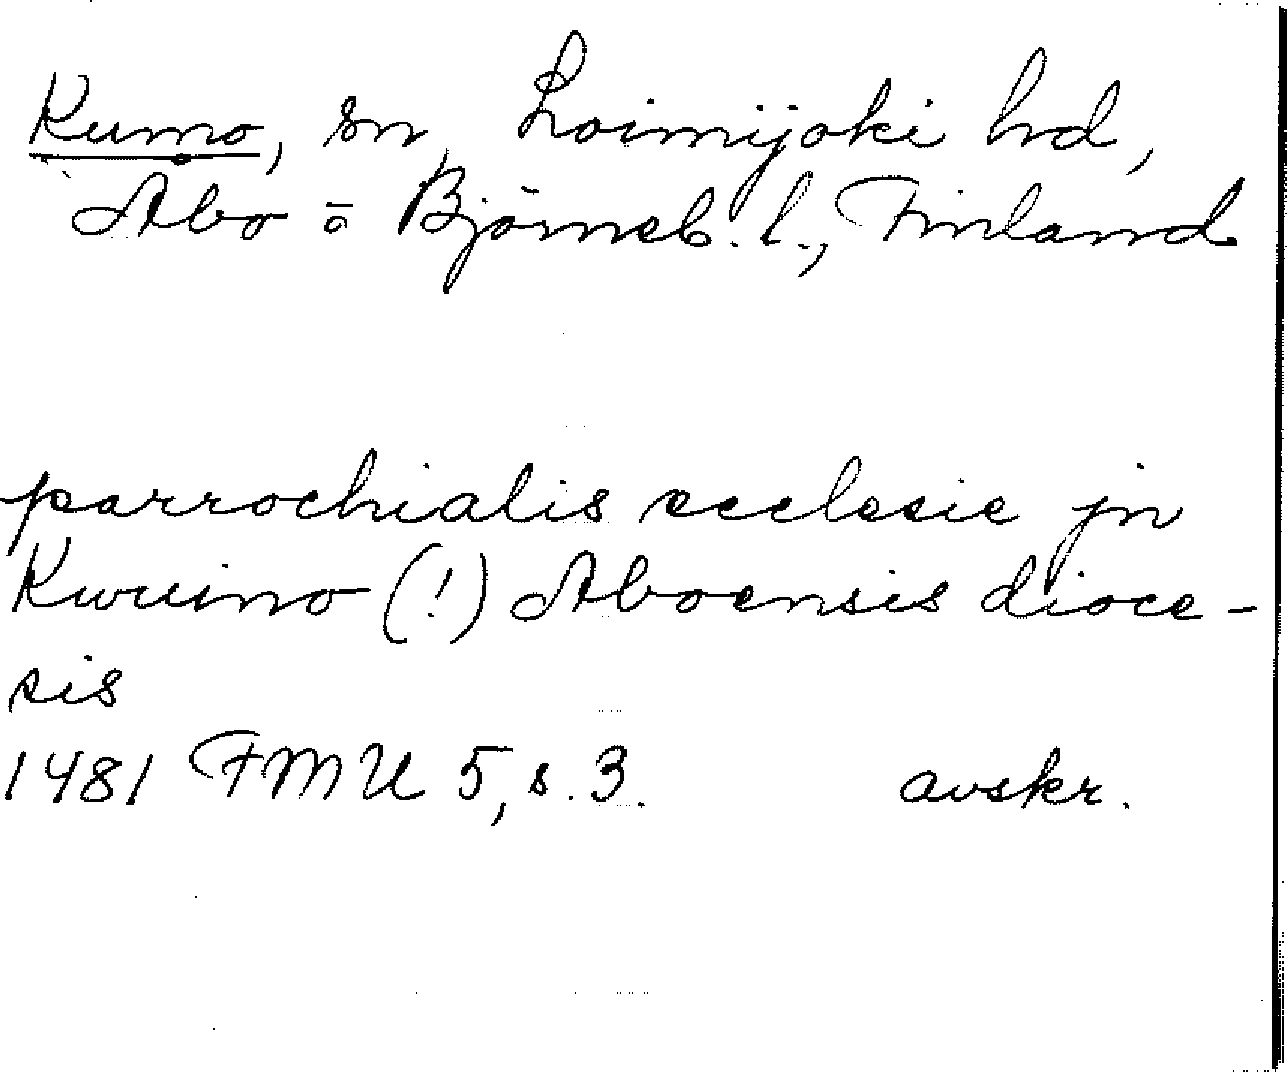 Kumo, sn, Loimijoki hd,
Åbo ö Björneb. l., Finland
parrochialis ecclesie jn
Kwuino (!) Aboensis dioce-
sis
1481 FMU 5, s. 3. avskr.